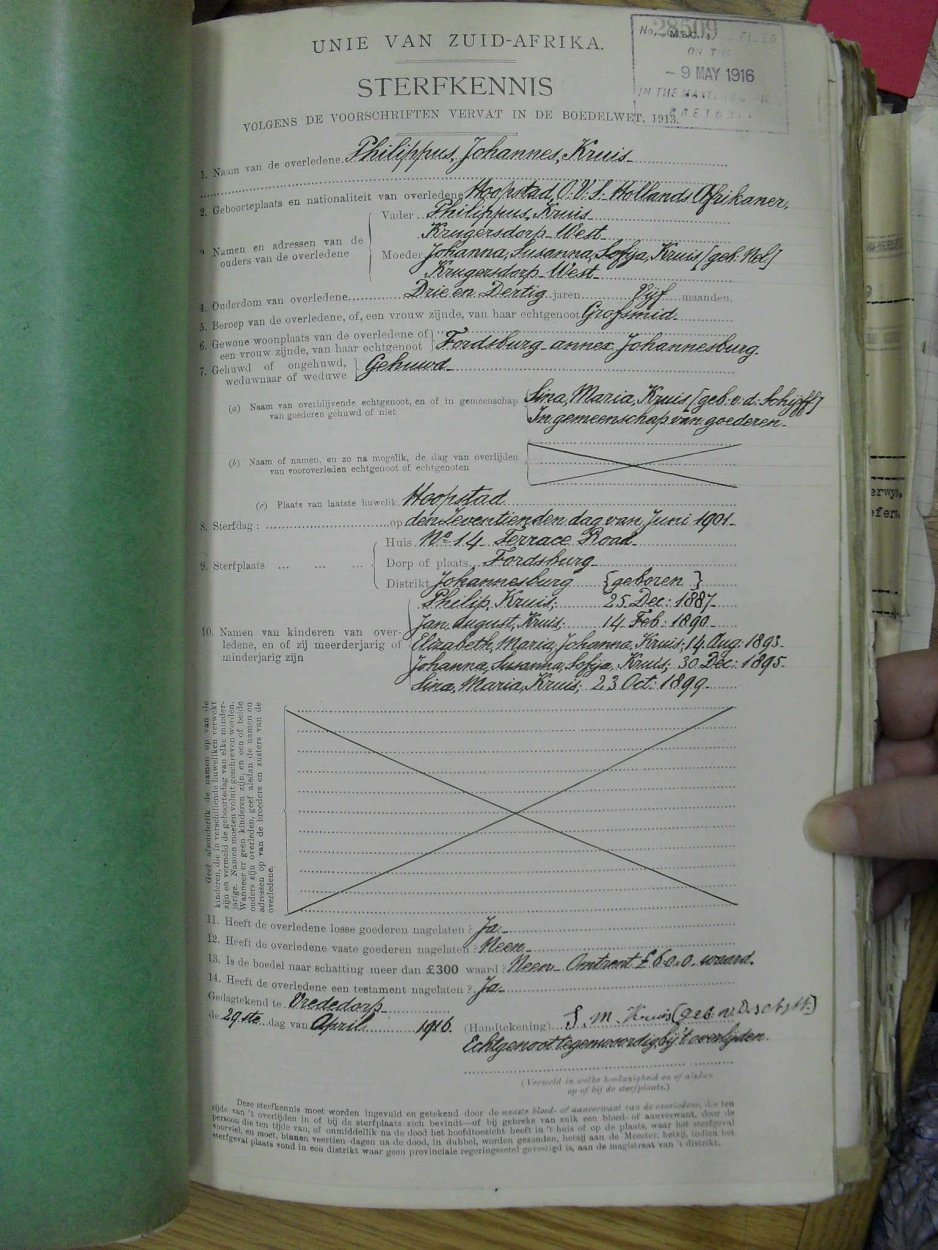 UNIE VAN ZUID-AFRIKA.
No. 28509 FILED
ON THE
- 9 MAY 1916
IN THE MASTER'S
STERFKENNIS
VOLGENS DE VOORSCHRIFTEN VERVAT IN DE BOEDELWET, 1913.
1. Naam van de overledene Philippus, Johannes, Kruis
2. Geboorteplaats en nationaliteit van overledene Hoopstad, O.V.S. Hollands Afrikaner.
3 Namen en adressen van de ouders van de overledene
Vader Philippus, Kruis
Krugersdorp West
Moeder Johanna, Susanna, Sofja, Kruis [geb: Nel]
Krugersdorp West
4. Ouderdom van overledene Drie en Dertig jaren Vijf maanden.
5. Beroep van de overledene, of, een vrouw zijnde, van haar echtgenoot Grofsmid.
6. Gewone woonplaats van de overledene of een vrouw zijnde, van haar echtgenoot Fordsburg annex Johannesburg.
7. Gehuwd of ongehuwd, weduwnaar of weduwe Gehuwd
(a) Naam van overblijvende echtgenoot, en of in gemeenschap van goederen gehuwd of niet
Sina, Maria, Kruis [geb: v.d. Schijff]
In gemeenschap van goederen.
(b) Naam of namen, en zo na mogelik, de dag van overlijden van vooroverleden echtgenoot of echtgenoten
(c) Plaats van laatste huwelik Hoopstad
8. Sterfdag : op den Zeventienden dag van Juni 1901
9. Sterfplaats ... ... ...
Huis No 14 Terrace Road
Dorp of plaats Fordsburg
Distrikt Johannesburg {geboren}
10. Namen van kinderen van overledene, en of zij meerderjarig of minderjarig zijn
Philip, Kruis; 25 Dec: 1887
Jan, August, Kruis; 14 Feb: 1890
Elizabeth, Maria, Johanna, Kruis; 14 Aug: 1893
Johanna, Susanna, Sofja, Kruis; 30 Dec: 1895
Sina, Maria, Kruis; 23 Oct: 1899
Geef afzonderlik de namen op van de
kinderen, die in verschillende huweliken verwekt
zijn en vermeld de geboortedag van elke minder-
jarige. Namen moeten voluit geschreven worden.
Wanneer er geen kinderen zijn, en een of beide
ouders zijn overleden, geef alsdan de namen en
adressen op van de broeders en zusters van de
overledene.
11. Heeft de overledene losse goederen nagelaten ? Ja
12. Heeft de overledene vaste goederen nagelaten ? Neen
13. Is de boedel naar schatting meer dan £300 waard ? Neen Omtrent £60.0 waard.
14. Heeft de overledene een testament nagelaten ? Ja
Gedagtekend te Vrededorp
de 29ste dag van April 1916 (Handtekening) S. M. Kruis
Echtgenoot tegenwoordig bij 't overlijden.
(Vermeld in welke hoedanigheid en of alsdan
op of bij de sterfplaats.)
Deze sterfkennis moet worden ingevuld en getekend door de naaste bloed- of aanverwant van de overledene, die ten
tijde van 't overlijden in of bij de sterfplaats zich bevindt—of bij gebreke van zulk een bloed- of aanverwant, door de
persoon die ten tijde van, of onmiddellik na de dood het hoofdtoezicht heeft in 't huis of op de plaats, waar het sterfgeval
voorviel, en moet, binnen veertien dagen na de dood, in dubbel, worden gezonden, hetzij aan de Meester, hetzij, indien het
sterfgeval plaats vond in een distrikt waar geen provinciale regeringszetel gevestigd is, aan de magistraat van 't distrikt.